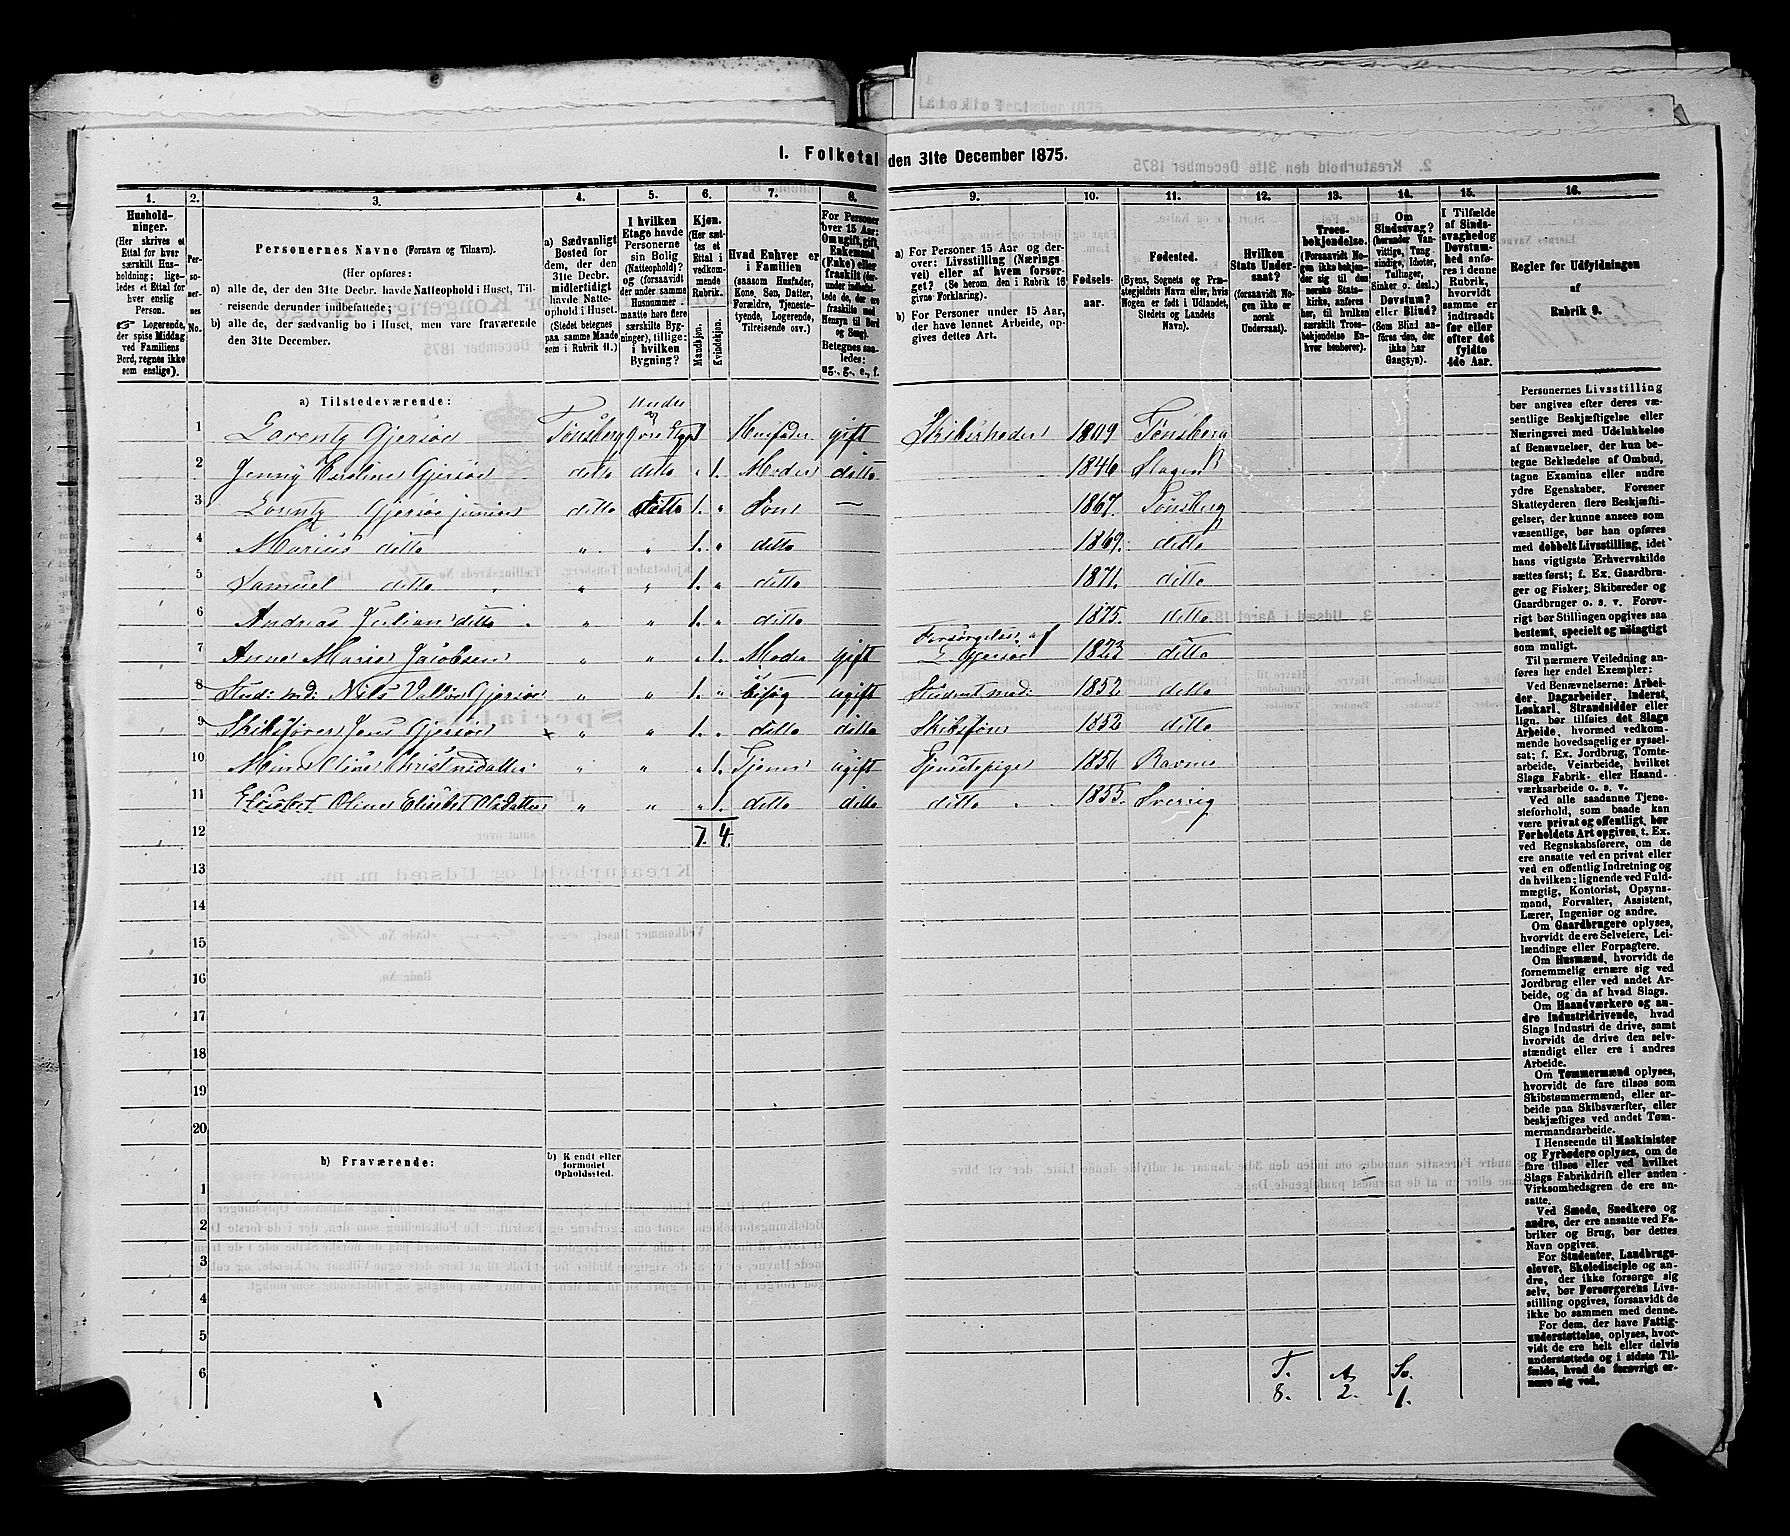 1. Folketal den 31te December 1875.
1.
2.
3.
4.
5.
6.
7.
8.
9.
10.
11.
12.
13.
14.
15.
16.
Hushold-
ninger.
(Her skrives et
Ettal for hver
særskilt Hus-
holdning; lige-
ledes et Ettal for
hver enslig
Person.
Logerende,
der spise Middag
ved Familiens
Bord, regnes ikke
som enslige).
Per-
so-
ner-
nes
No.
Personernes Navne (Fornavn og Tilnavn).
(Her opføres:
a) alle de, der den 31te Decbr. havde Natteophold i Huset, Til-
reisende derunder indbefattede;
b) alle de, der sædvanlig bo i Huset, men vare fraværende
den 31te December.
a) Sædvanligt
Bosted for
dem, der den
31te Decbr.
midlertidigt
havde Natte-
ophold i Huset.
(Stedet betegnes
paa samme Maade
som i Rubrik 11.)
I hvilken
Etage havde
Personerne
sin Bolig
(Natteophold)?
(og forsaavidt
der under samme
Husnummer
maatte høre flere
særskilte Byg-
ninger), tillige:
i hvilken
Bygning?
Kjøn.
(Her sæt-
tes et
Ettal i
vedkom-
mende
Rubrik.
Mandkjøn.
Kvindekjøn.
Hvad Enhver er
i Familien
(saasom Husfader,
Kone, Søn, Datter,
Forældre, Tjeneste-
tyende, Logerende,
Tilreisende osv.)
For Personer
over 15 Aar:
Om ugift, gift,
Enkemand
(Enke) eller
fraskilt
Betegnes saa-
ledes:
ug., g., e., f.
a) For Personer 15 Aar og der-
over: Livsstilling (Nærings-
vei) eller af hvem forsør-
get? (Se herom, den i Rubrik 16
givne Forklaring).
b) For Personer under 15 Aar,
der have lønnet Arbeide, op-
gives dettes Art.
Fødsels-
aar.
Fødested.
(Byens, Sognets og Præ-
stegjeldets Navn eller, hvis
Nogen er født i Udlandet,
Stedets og Landets
Navn).
Hvilken
Stats Under-
saat?
(forsaavidt No-
gen ikke er
norsk
Undersaat).
Troes-
bekjendelse.
(Forsaavidt No-
gen ikke bekjen-
der sig til den
norske Stats-
kirke, anføres
her, til hvilken
særskilt Troes-
bekjendelse En-
hver henhører).
Om
Sindssvag?
(herunder Van-
vittige, Tung-
sindige, Idioter,
Tullinger,
Sinker o. desl.)
Døvstum?
eller Blind?
(Som Blind an-
føres den, der
ikke har
Gangsyn).
I Tilfælde
af Sinds-
svaghed og
Døvstum-
hed anfø-
res i denne
Rubrik,
hvorvidt
samme er
indtraadt
før eller
efter det
fyldte
4de Aar.
Regler for Udfyldningen
af
Rubrik 9.
a) Tilstedeværende:
1 Lorentz Gjersøe Tønsberg Husfader gift Skibsrheder 1809 Tønsberg
2 Jenny Caroline Gjersøe ditto ditto " 1. Moder ditto 1846 Slagen
3 Lorentz Gjersøe junior ditto ditto 1. " Søn — 1867. Tønsberg
4 Marius ditto " " 1. " ditto 1869. ditto
5 Samuel ditto " " 1. " ditto 1871. ditto
6 Andreas Julian ditto " " 1. " ditto 1875. ditto
7 Anne Marie Jacobsen " " " 1. Moder gift Forsørgelse af L Gjersøe 1823 ditto
8 Stud: med: Nils Gjersøe " " 1. " besøg ugift Student med: 1852 ditto
9 Skibsfører Jens Gjersøe × " " 1. " ditto ditto Skibsfører 1852 ditto
10 " " " 1. Tjener ugift Tjenestepige 1856 Ravnes
11 Oline Elisebet Olsdatter " " " 1. ditto ditto ditto 1855. Sverrig
12 7. 4.
13
14
15
16
17
18
19
20
b) Fraværende:
b) Kendt eller
formodet
Opholdssted.
1
2
3
4
5
6
T. A. Sv.
8. 2. 1.
Personernes Livsstilling
bør angives efter deres væ-
sentlige Beskjæftigelse eller
Næringsvei med Udelukkelse
af Benævnelser, der kun be-
tegne Beklædelse af Ombud,
tagne Examina eller andre
ydre Egenskaber. Forener
Skatteyderen flere Beskjæfti-
gelser, der kunne ansees som
væsentlige, bør han opføres
med dobbelt Livsstilling, idet
hans vigtigste Erhvervskilde
sættes først; f. Ex. Gaardbru-
ger og Fisker; Skibsreder og
Gaardbruger o. s. v. Forøv-
rigt bør Stillingen opgives saa
bestemt, specielt og nøiagtigt
som muligt.
Til nærmere Veiledning an-
føres her endel Exempler:
Ved Benævnelserne: Arbei-
der, Dagarbeider, Inderst,
Løskarl, Strandsidder eller
lign. bør tilføies det Slags
Arbeide, hvormed vedkom-
mende hovedsagelig er syssel-
sat; f. Ex. Jordbrug, Tomte-
arbeide, Veiarbeide, hvilket
Slags Fabrik- eller Haand-
værksarbeide o. s. v.
Ved alle saadanne Tjene-
steforhold, som baade kan
være privat og offentligt, bør
Forholdets Art opgives, t. Ex.
ved Regnskabsførere, om de
ere ansatte ved en privat eller
ved en offentlig Indretning og
da hvilken; lignende ved Fuld-
mægtig, Kontorist, Opsyns-
mand, Forvalter, Assistent,
Lærer, Ingeniør og andre.
Om Gaardbrugere oplyses,
hvorvidt de ere Selveiere, Lei-
lændinge eller Forpagtere.
Om Husmænd, hvorvidt de
fornemmelig ernære sig ved
Jordbrug eller ved andet Ar-
beide, og da af hvad Slags.
Om Haandværkere og an-
dre Industridrivende, hvad
Slags Industri de drive, samt
hvorvidt de drive den selv-
stændigt eller ere i andres
Arbeide.
Om Tømmermænd oplyses,
hvorvidt de fare tilsøs som
Skibstømmermænd, eller ar-
beide paa Skibsværfter, eller
beskjæftiges ved andet Tøm-
mermandsarbeide.
I Henseende til Maskinister
og Fyrbødere oplyses, om de
fare tilsøs eller ved hvilket
Slags Fabrikdrift eller anden
Virksomhedsgren de ere an-
satte.
Ved Smede, Snedkere og
andre, der ere ansatte ved Fa-
briker og Brug, bør dettes
Navn opgives.
For Studenter, Landbrugs-
elever, Skoledisciple og an-
dre, der ikke forsørge sig
selv, bør Forsørgerens Livs-
stilling opgives, forsaavidt de
ikke bo sammen med denne.
For dem, der have Fattig-
understøttelse, oplyses, hvor-
vidt de ere helt eller delvis
understøttede og i sidste Til-
fælde, hvad de forøvrigt er-
nære sig ved.